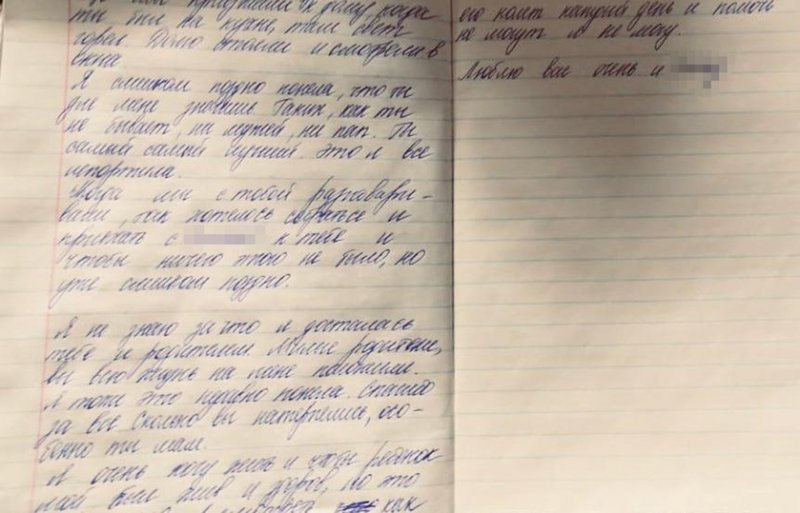 тоже был на кухне, там свет
горел. Долго стояли и смотрели в
окна
Я слишком поздно поняла, что ты
для меня значишь. Таких, как ты
не бывает, ни мужей, ни пап. Ты
самый самый лучший. Это я все
испортила.
Когда мы с тобой разговари-
вали, так хотелось собраться и
приехать с к тебе и
чтобы ничего этого не было, но
уже слишком поздно.
Я не знаю за что я досталась
тебе и родителям. Милые родители,
вы всю жизнь на меня положили.
Я тоже это поздно поняла. Спасибо
за все сколько вы натерпелись, осо-
бенно ты мам.
Я очень хочу жить и чтобы ребенок
мой был жив и здоров, но это
как
его каждый день и помочь
не могут и не могу.
Люблю вас очень и